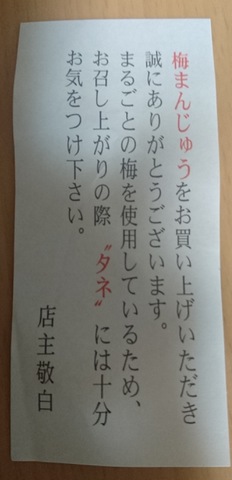 梅まんじゅうをお買い上げいただき
誠にありがとうございます。
まるごとの梅を使用しているため、
お召し上がりの際〝タネ〟には十分
お気をつけ下さい。
店主敬白